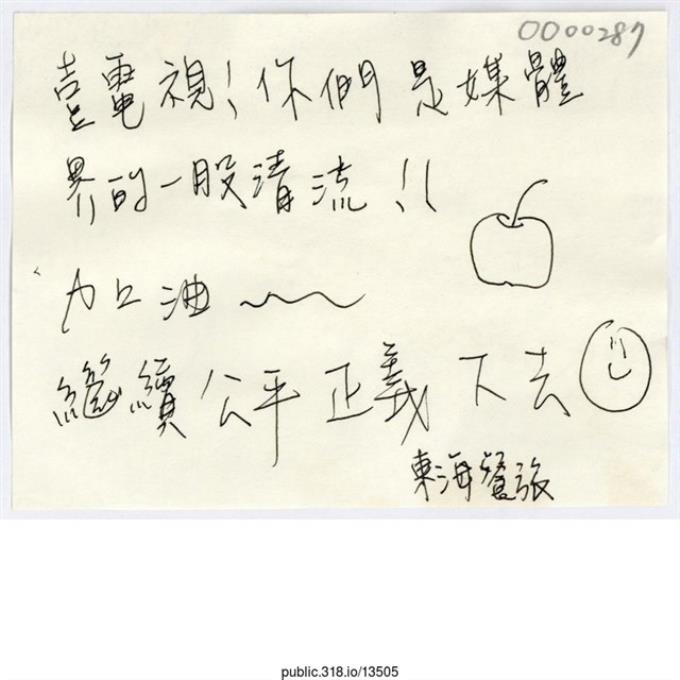 0000287
壹電視！你們是媒體
界的一股清流！！
加油～～
繼續公平正義下去
東海餐旅
public.318.io/13505